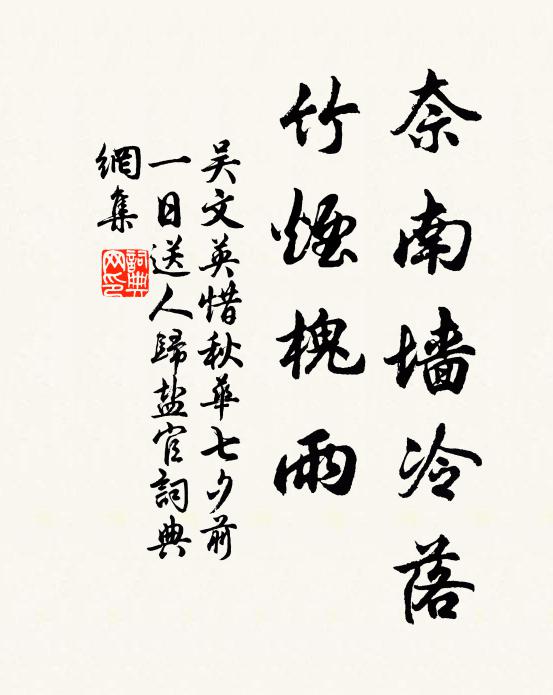 奈南墙冷落
竹煙槐雨
吴文英惜秋華七夕前
一日送人歸盐官詞典
網集
詞典网印